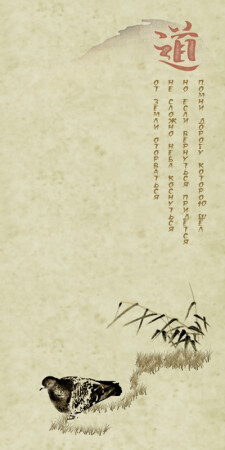 道
ПОМНИ ДОРОГУ КОТОРОЮ ШЕЛ
НО ЕСЛИ ВЕРНУТЬСЯ ПРИДЕТСЯ
НЕ СЛОЖНО НЕБА КОСНУТЬСЯ
ОТ ЗЕМЛИ ОТОРВАТЬСЯ